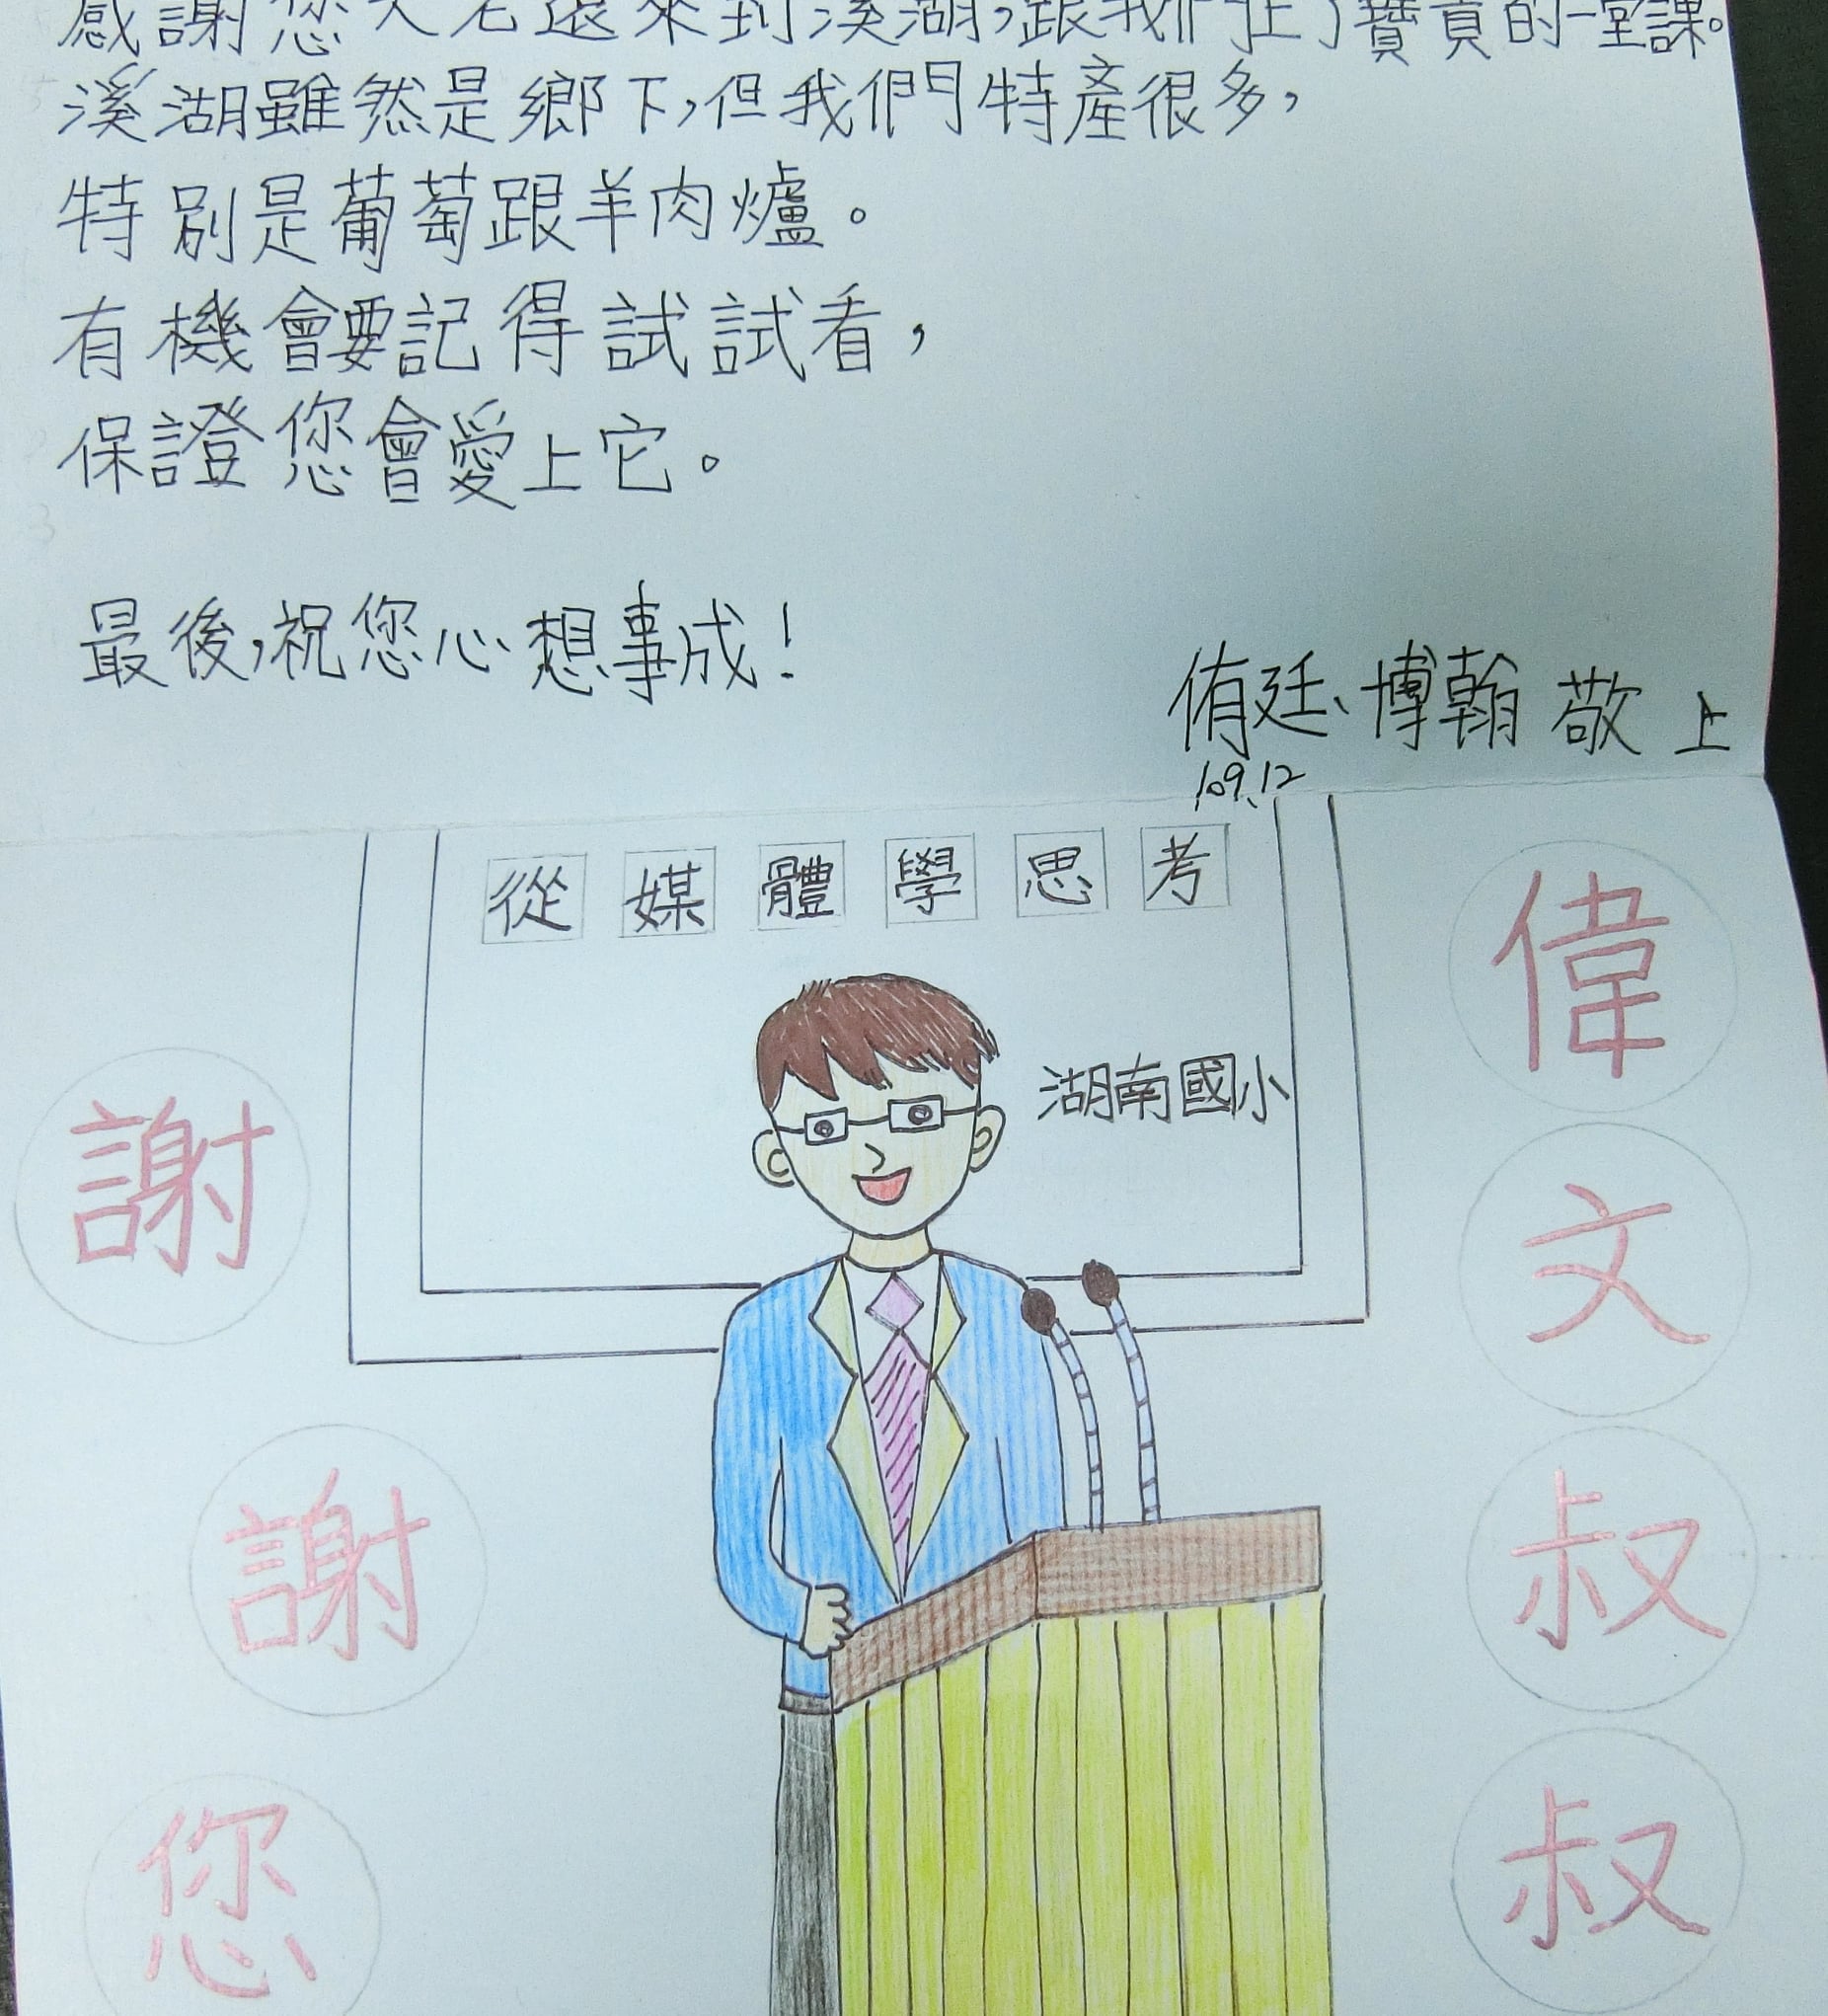 感謝您大老遠來到溪湖,跟我們上了寶貴的一堂課。
溪湖雖然是鄉下,但我們特產很多,
特別是葡萄跟羊肉爐。
有機會要記得試試看,
保證您會愛上它。
最後,祝您心想事成!
侑廷、博翰 敬上
109.12
從媒體學思考
湖南國小
偉文叔叔
謝謝您